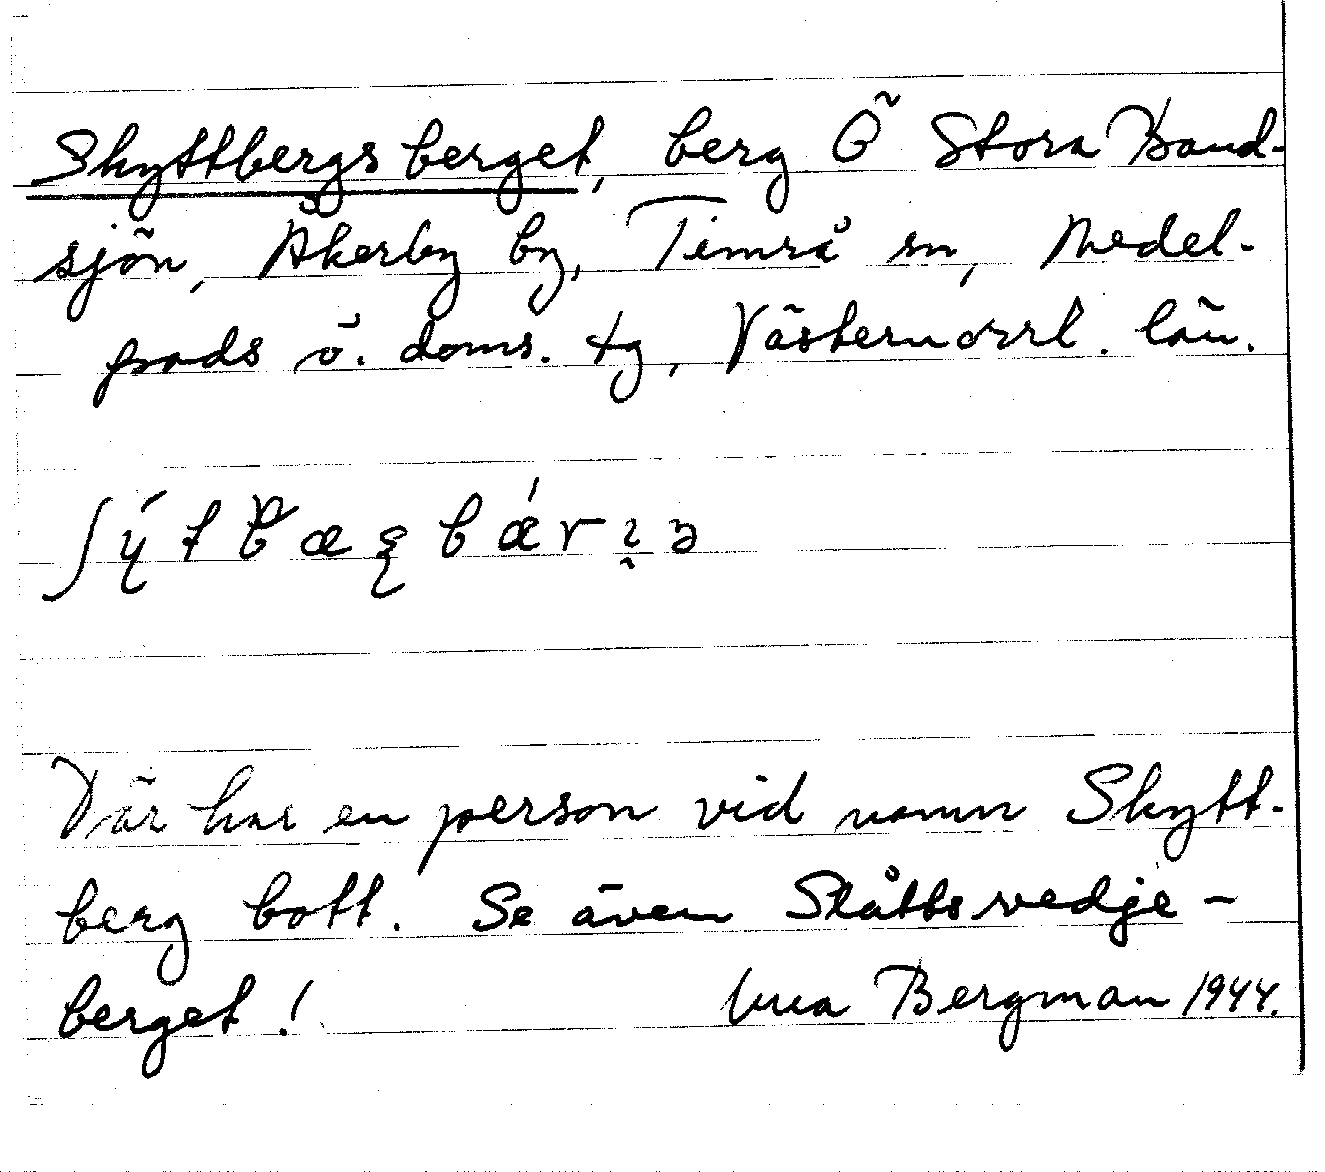 Skyttbergsberget, berg Ö Stora Band-
sjön, Åkerby by, Timrå sn, Medel-
pads ö. doms. tg, Västernorrl. län.
Där har en person vid namn Skytt-
berg bott. Se även Slåttsvedje-
berget!
Bergman 1944.